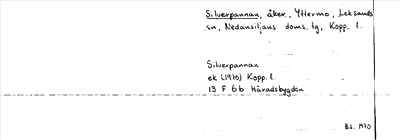 Silverpannan, åker, Yttermo, Leksands
sn, Nedansiljans doms. tg, Kopp. l.
Silverpannan
ek (1970) Kopp. l.
13 F 6b Häradsbygden
B.L. 1970